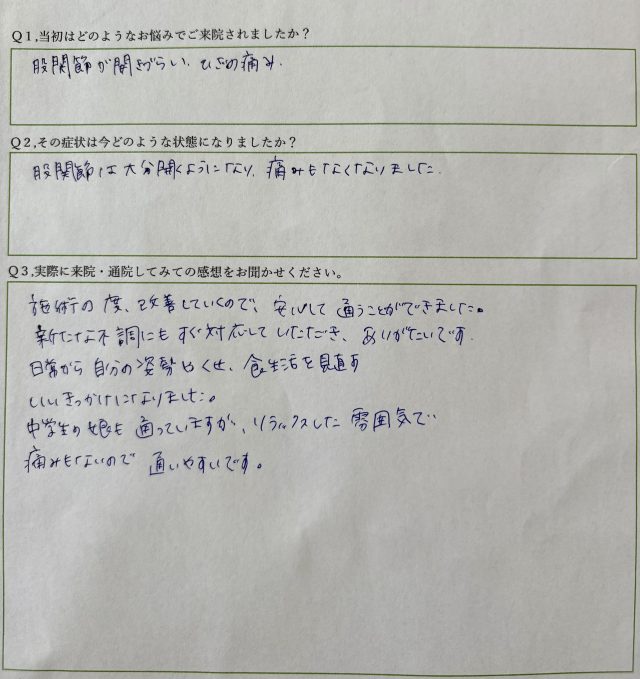 Q1,当初はどのようなお悩みでご来院されましたか？
股関節が開きづらい、ひざの痛み.
Q2,その症状は今どのような状態になりましたか？
股関節は大分開くようになり、痛みもなくなりました.
Q3,実際に来院・通院してみての感想をお聞かせください。
施術の度、改善していくので、安心して通うことができました。
新たな不調にもすぐ対応していただき、ありがたいです.
日常から自分の姿勢やくせ、食生活を見直す
いいきっかけになりました。
中学生の娘も通っていますが、リラックスした雰囲気で
痛みもないので通いやすいです。